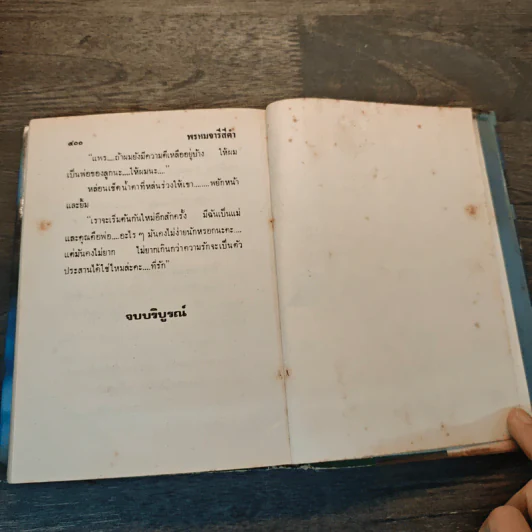 ๔๐๐ พรหมจารีสีดำ
"แพร....ถ้าผมยังมีความดีเหลืออยู่บ้าง ให้ผม
เป็นพ่อของลูกนะ....ให้ผมนะ...."
หล่อนเช็ดน้ำตาที่หล่นร่วงให้เขา........พยักหน้า
และยิ้ม
"เราจะเริ่มต้นกันใหม่อีกสักครั้ง มีฉันเป็นแม่
และคุณคือพ่อ....อะไร ๆ มันคงไม่ง่ายนักหรอกนะคะ....
แต่มันคงไม่ยาก ไม่ยากเกินกว่าความรักจะเป็นตัว
ประสานได้ใช่ไหมล่ะคะ....ที่รัก"
จบบริบูรณ์